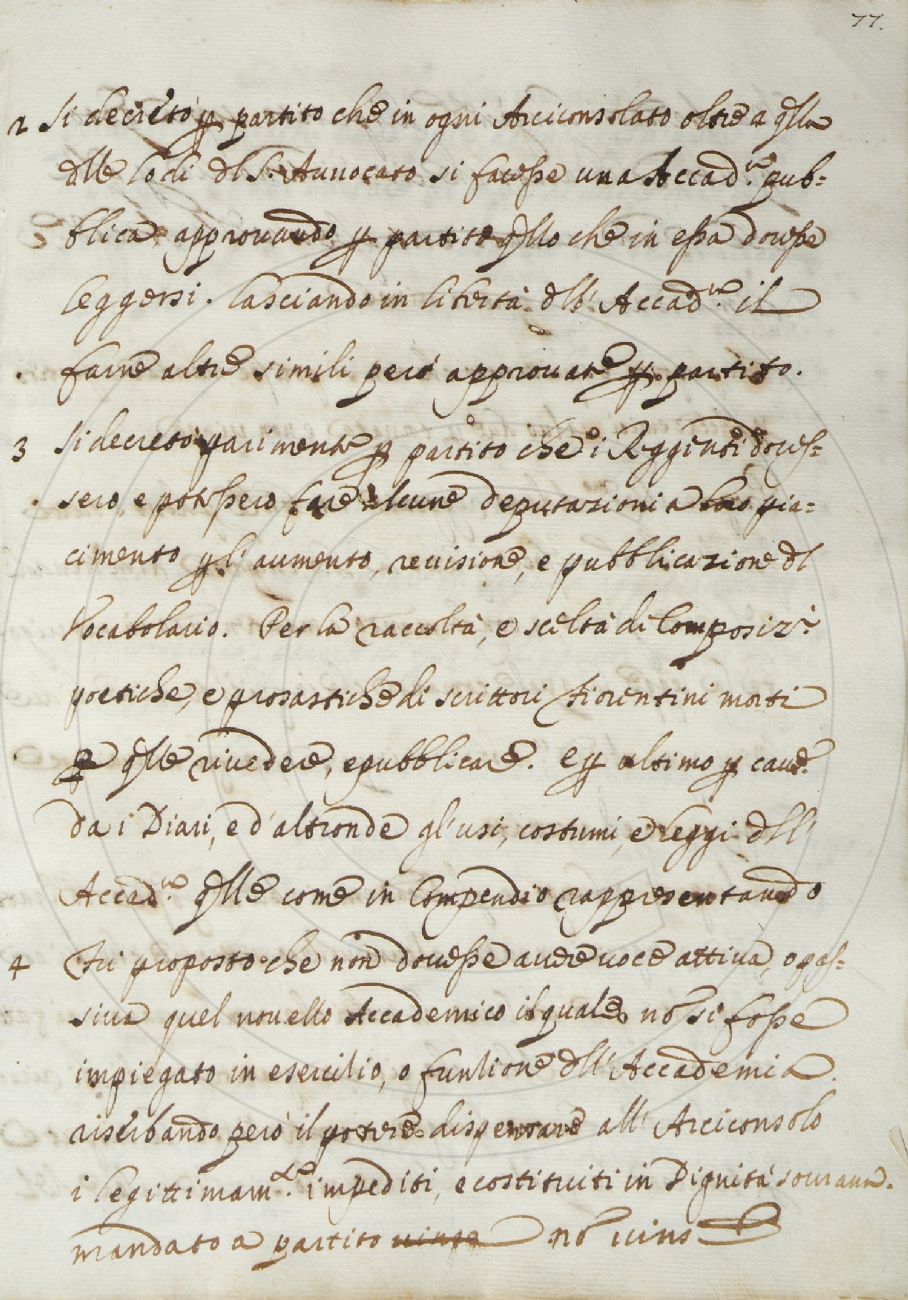 77.
2 Si decretò p partito che in ogni Arciconsolato oltre a qlla
dlle lodi dl S.r Auuocato si facesse una Accad.ia pub=
blica approuando p partito qllo che in essa douesse
leggersi. lasciando in libertà dll' Accad.ia il
farne altre simili però approuate p partito.
3 Si decretò parimente p partito che i Reggenti doues=
sero, e potessero fare alcune deputazioni a loro pia=
cimento p l' aumento, reuisione, e pubblicazione dl
Vocabolario. Per la raccolta, e scelta di Composiz.i
poetiche, e prosastiche di scrittori fiorentini morti
p qlle riuedere, e pubblicare. e p ultimo p cauar
da i Diari, e d' altronde gl' usi, costumi, e leggi dll'
Accad.ia qlle come in Compendio rappresentando
4 Fù proposto che non douesse auere uoce attiua, o pas=
siua quel nouello Accademico il quale nō si fosse
impiegato in esercitio, o funtione dll' Accademia.
riserbando però il potere dispensare all' Arciconsolo
i legittimam.te impediti, e costituiti in Dignità sourana.
mandato a partito uinto nō uinto